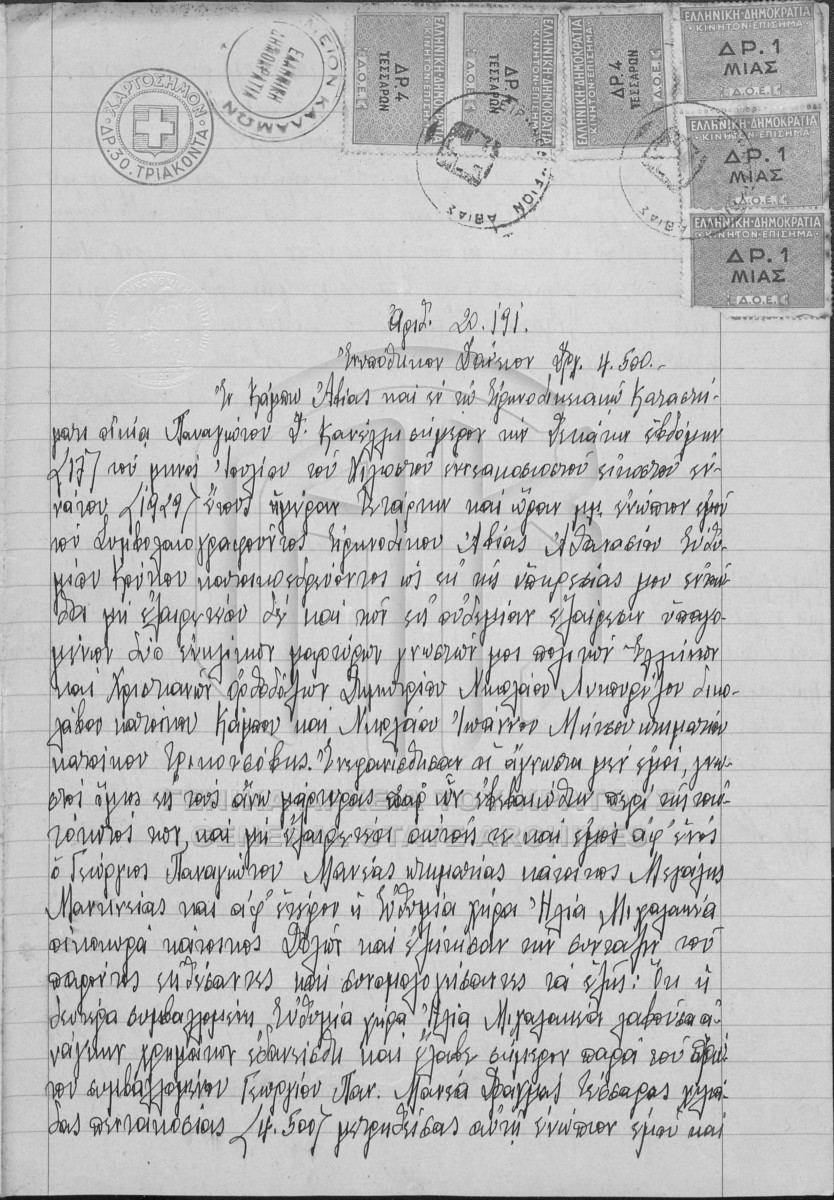 ΧΑΡΤΟΣΗΜΟΝ
ΔΡ.30.ΤΡΙΑΚΟΝΤΑ
ΕΛΛΗΝΙΚΗ ΔΗΜΟΚΡΑΤΙΑ
ΚΑΛΑΜΩΝ
ΕΛΛΗΝΙΚΗ·ΔΗΜΟΚΡΑΤΙΑ
ΚΙΝΗΤΟΝ·ΕΠΙΣΗΜΑ
ΔΡ.4
ΤΕΣΣΑΡΩΝ
Δ.Ο.Ε.
ΕΛΛΗΝΙΚΗ·ΔΗΜΟΚΡΑΤΙΑ
ΚΙΝΗΤΟΝ·ΕΠΙΣΗΜΑ
ΔΡ.
ΤΕΣΣΑΡΩΝ
Δ.Ο.Ε.
ΕΛΛΗΝΙΚΗ·ΔΗΜΟΚΡΑΤΙΑ
ΚΙΝΗΤΟΝ·ΕΠΙΣΗΜΑ
ΔΡ.4
ΤΕΣΣΑΡΩΝ
Δ.Ο.Ε.
ΕΛΛΗΝΙΚΗ·ΔΗΜΟΚΡΑΤΙΑ
ΚΙΝΗΤΟΝ·ΕΠΙΣΗΜΑ
ΔΡ.1
ΜΙΑΣ
Δ.Ο.Ε.
ΕΛΛΗΝΙΚΗ·ΔΗΜΟΚΡΑΤΙΑ
ΚΙΝΗΤΟΝ·ΕΠΙΣΗΜΑ
ΔΡ.1
ΜΙΑΣ
Δ.Ο.Ε.
ΕΛΛΗΝΙΚΗ·ΔΗΜΟΚΡΑΤΙΑ
ΚΙΝΗΤΟΝ·ΕΠΙΣΗΜΑ
ΔΡ.1
ΜΙΑΣ
Δ.Ο.Ε.
ΑΒΙΑΣ
Ἀριθ. 20.191.
Ἐνυπόθηκον Δάνειον Δρχ. 4.500.-
Ἐν Κάμπω Ἀβίας καὶ ἐν τῷ Εἰρηνοδικειακῷ Καταστή-
ματι οἰκίᾳ Παναγιώτου Δ. Κανέλλη σήμερον τὴν δεκάτην ἑβδόμην
(17) τοῦ μηνὸς Ἰουλίου τοῦ χιλιοστοῦ ἐννεακοσιοστοῦ εἰκοστοῦ ἐν-
νάτου (1929) ἔτους ἡμέραν Τετάρτην καὶ ὥραν μμ. ἐνώπιον ἐμοῦ
τοῦ Συμβολαιογραφοῦντος Εἰρηνοδίκου Ἀβίας Ἀθανασίου Εὐθυ-
μίου κατοικοεδρεύοντος ὡς ἐκ τῆς ὑπηρεσίας μου ἐνταῦ-
θα μὴ ἐξαιρετέου δὲ καὶ τῶν εἰς οὐδεμίαν ἐξαίρεσιν ὑπαγο-
μένων δύο ἐνηλίκων μαρτύρων γνωστῶν μοι πολιτῶν Ἑλλήνων
καὶ Χριστιανῶν Ὀρθοδόξων Δημητρίου Νικολάου δικο-
λάβου κατοίκου Κάμπου καὶ Νικολάου Ἰωάννου κτηματίου
κατοίκου Τρικοτσόβης. Ἐνεφανίσθησαν οἱ ἄγνωστοι μὲν ἐμοί, γνω-
στοὶ ὅμως εἰς τοὺς ἄνω μάρτυρας παρ' ὧν ἐβεβαιώθην περὶ τῆς ταὐ-
τότητός των καὶ μὴ ἐξαιρετέοι αὐτοῖς τε καὶ ἐμοὶ ἀφ' ἑνὸς
ὁ Γεώργιος Παναγιώτου Μανέας κτηματίας κάτοικος Μεγάλης
Μαντινείας καὶ ἀφ' ἑτέρου ἡ Εὐθυμία χήρα Ἠλία Μιχαλακέα
οἰκοκυρὰ κάτοικος Δολῶν καὶ ἐζήτησαν τὴν σύνταξιν τοῦ
παρόντος ἐκθέσαντες καὶ συνομολογήσαντες τὰ ἑξῆς: Ὅτι ἡ
δευτέρα συμβαλλομένη Εὐθυμία χήρα Ἠλία Μιχαλακέα λαβοῦσα ἀ-
νάγκην χρημάτων ἐδανείσθη καὶ ἔλαβε σήμερον παρὰ τοῦ πρώ-
του συμβαλλομένου Γεωργίου Παν. Μανέα δραχμὰς τέσσαρας χιλιά-
δας πεντακοσίας (4.500) μετρηθείσας αὐτῇ ἐνώπιον ἐμοῦ καὶ